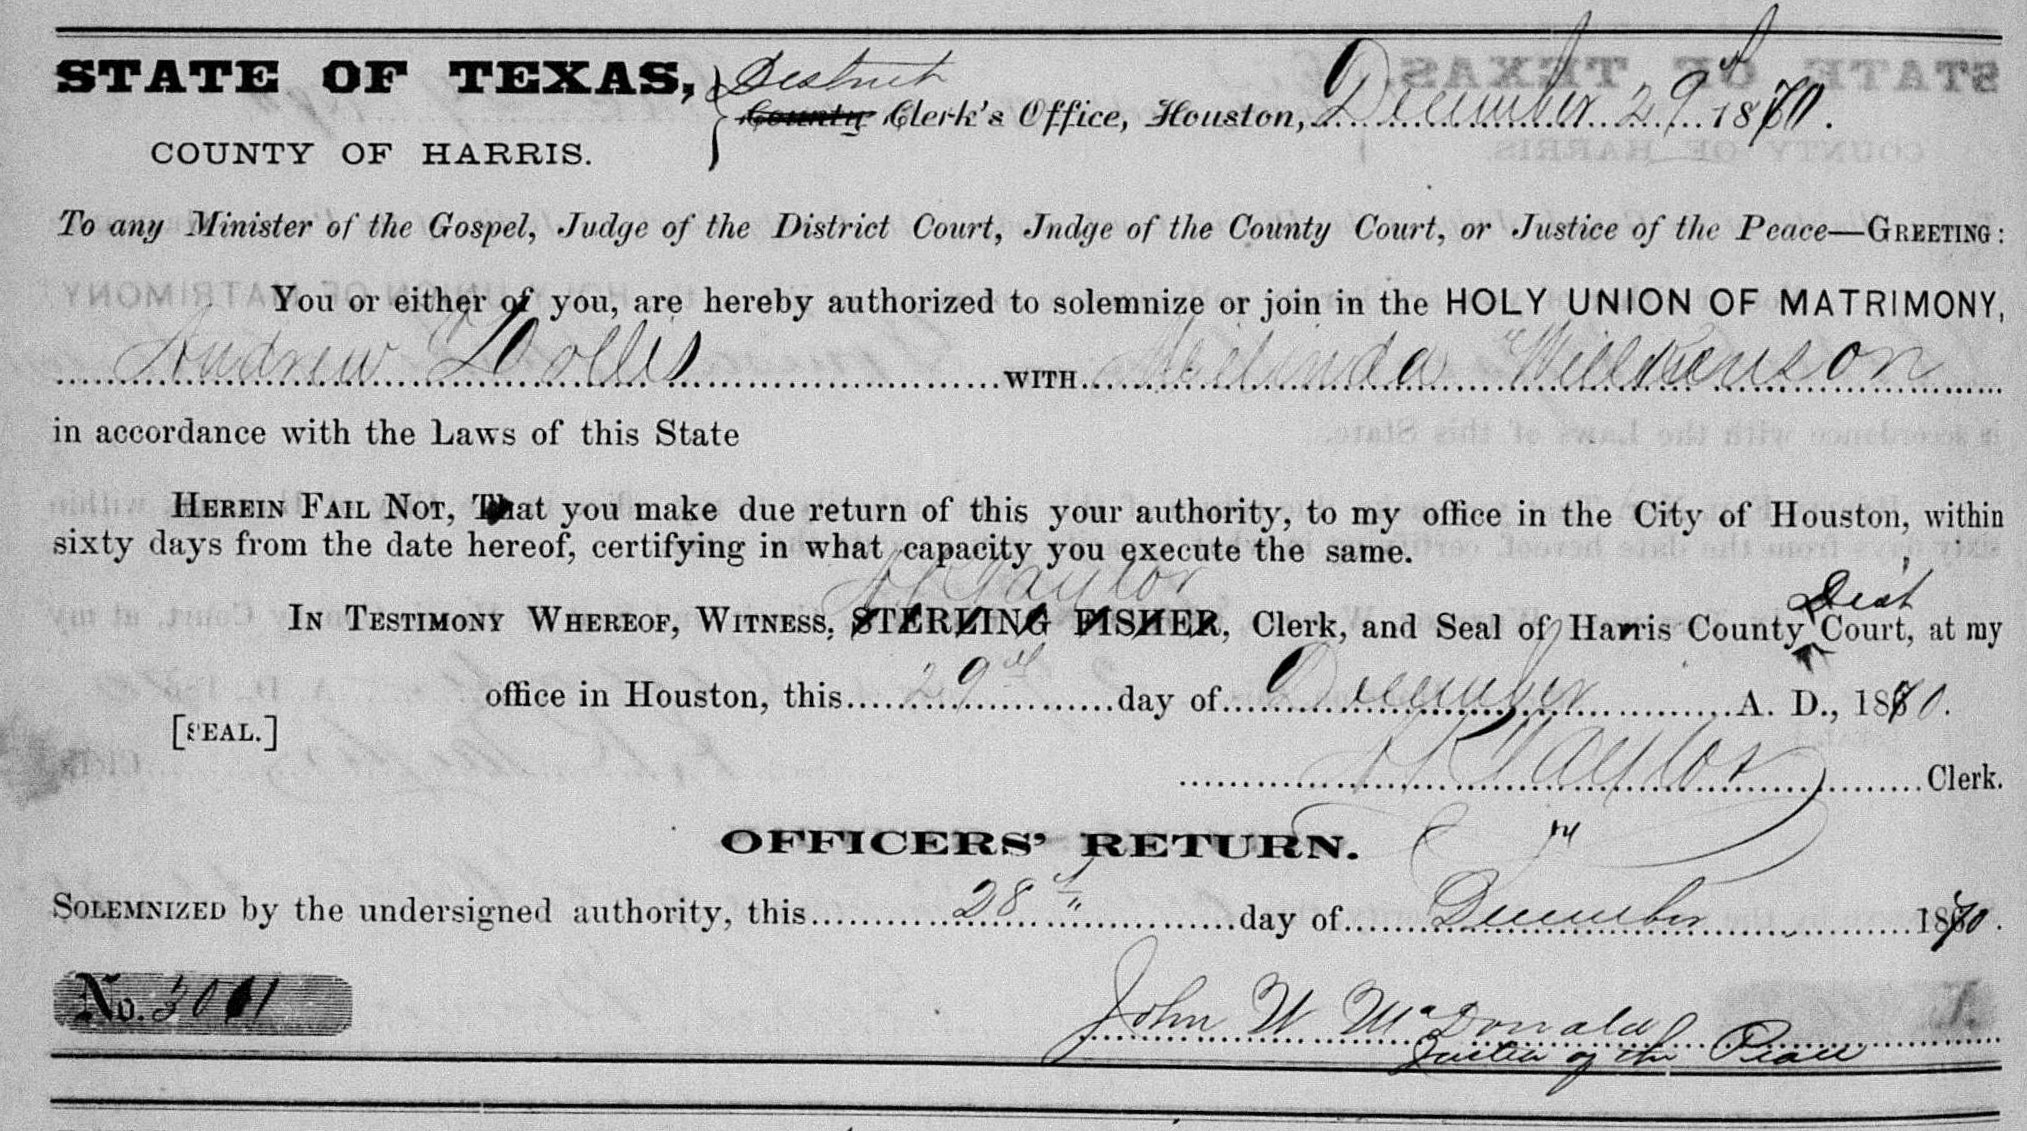 STATE OF TEXAS,
COUNTY OF HARRIS.
District
County Clerk's Office, Houston, December 29th 1870.
To any Minister of the Gospel, Judge of the District Court, Jndge of the County Court, or Justice of the Peace—GREETING:
You or either of you, are hereby authorized to solemnize or join in the HOLY UNION OF MATRIMONY,
Andrew Hollis WITH Melinda Wilkenson
in accordance with the Laws of this State
HEREIN FAIL NOT, That you make due return of this your authority, to my office in the City of Houston, within
sixty days from the date hereof, certifying in what capacity you execute the same.
Taylor
Dist
IN TESTIMONY WHEREOF, WITNESS, STERLING FISHER, Clerk, and Seal of Harris County Court, at my
office in Houston, this 29th day of December A. D., 1870.
[SEAL.]
Taylor Clerk.
OFFICERS' RETURN.
SOLEMNIZED by the undersigned authority, this 28th day of December 1870.
No. 3011
John W McDonald
Justice of the Peace